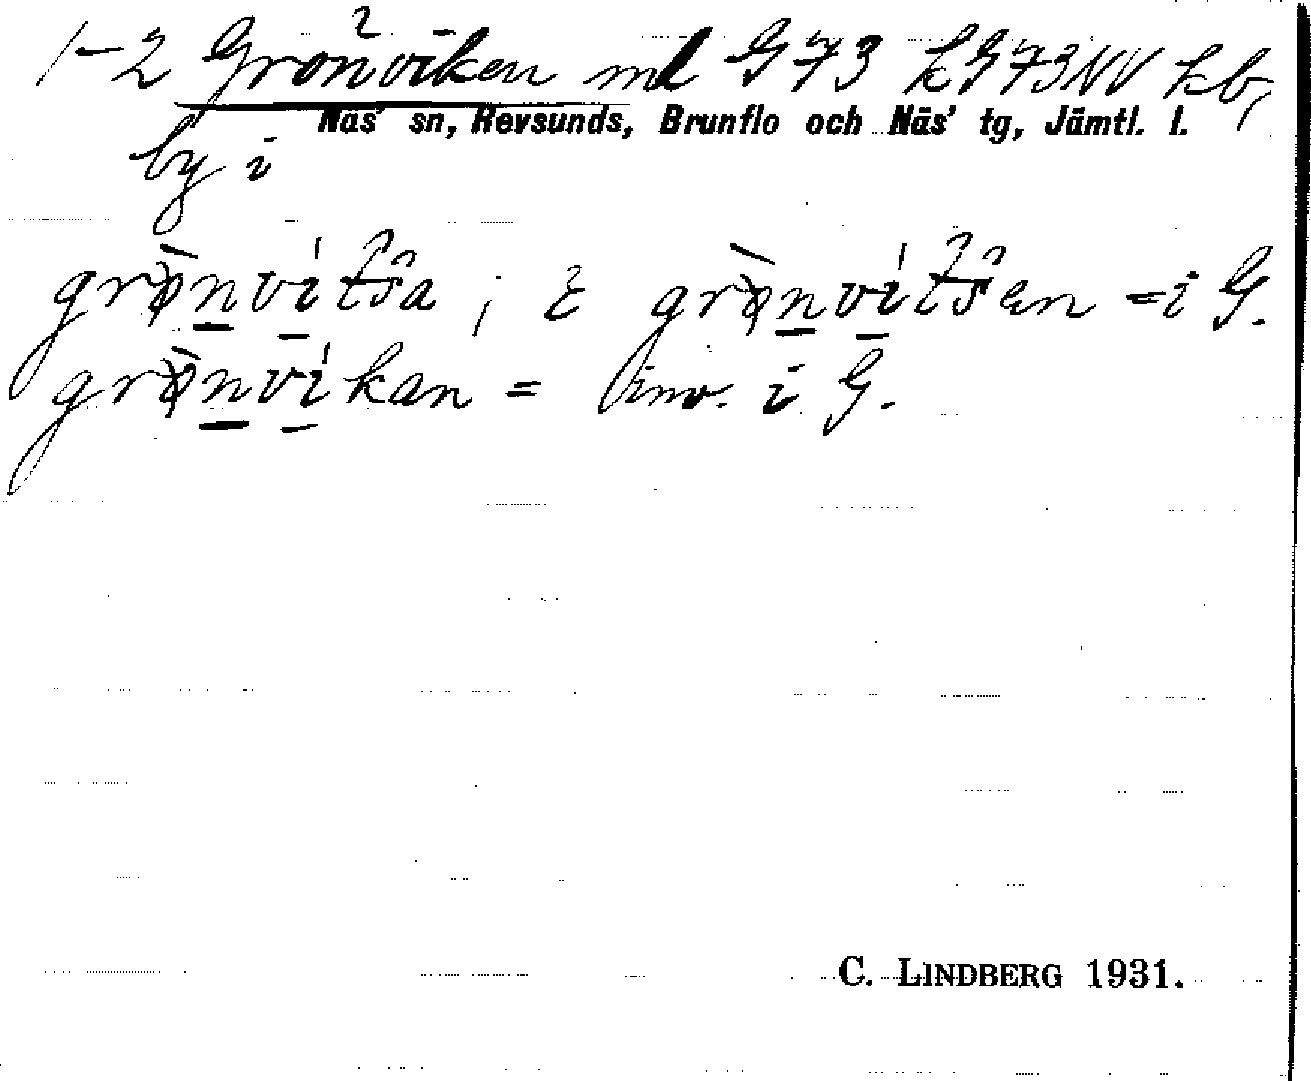 1-2 Grönviken md G73 kG73NV kb,
Näs' sn, Revsunds, Brunflo och Näs' tg, Jämtl. l.
by i
grønvitša ; è grønvitšen = i G.
grønvikan = inv. i G.
C. LINDBERG 1931.